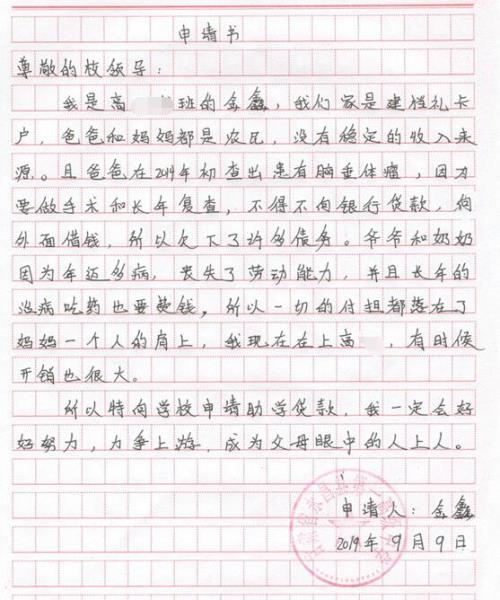 申请书
尊敬的校领导:
我是高 班的金鑫,我们家是建档礼卡
户,爸爸和妈妈都是农民,没有稳定的收入来
源。且爸爸在2019年初查出患有脑垂体瘤,因为
要做手术和长年复查,不得不向银行贷款,向
外面借钱,所以欠下了许多债务。爷爷和奶奶
因为年迈多病,丧失了劳动能力,并且长年的
没病吃药也要费钱,所以一切的付担都落在了
妈妈一个人的肩上,我现在在上高 ,有时候
开销也很大。
所以特向学校申请助学贷款,我一定会好
好努力,力争上游,成为父母眼中的人上人。
申请人:金鑫
2019年9月9日